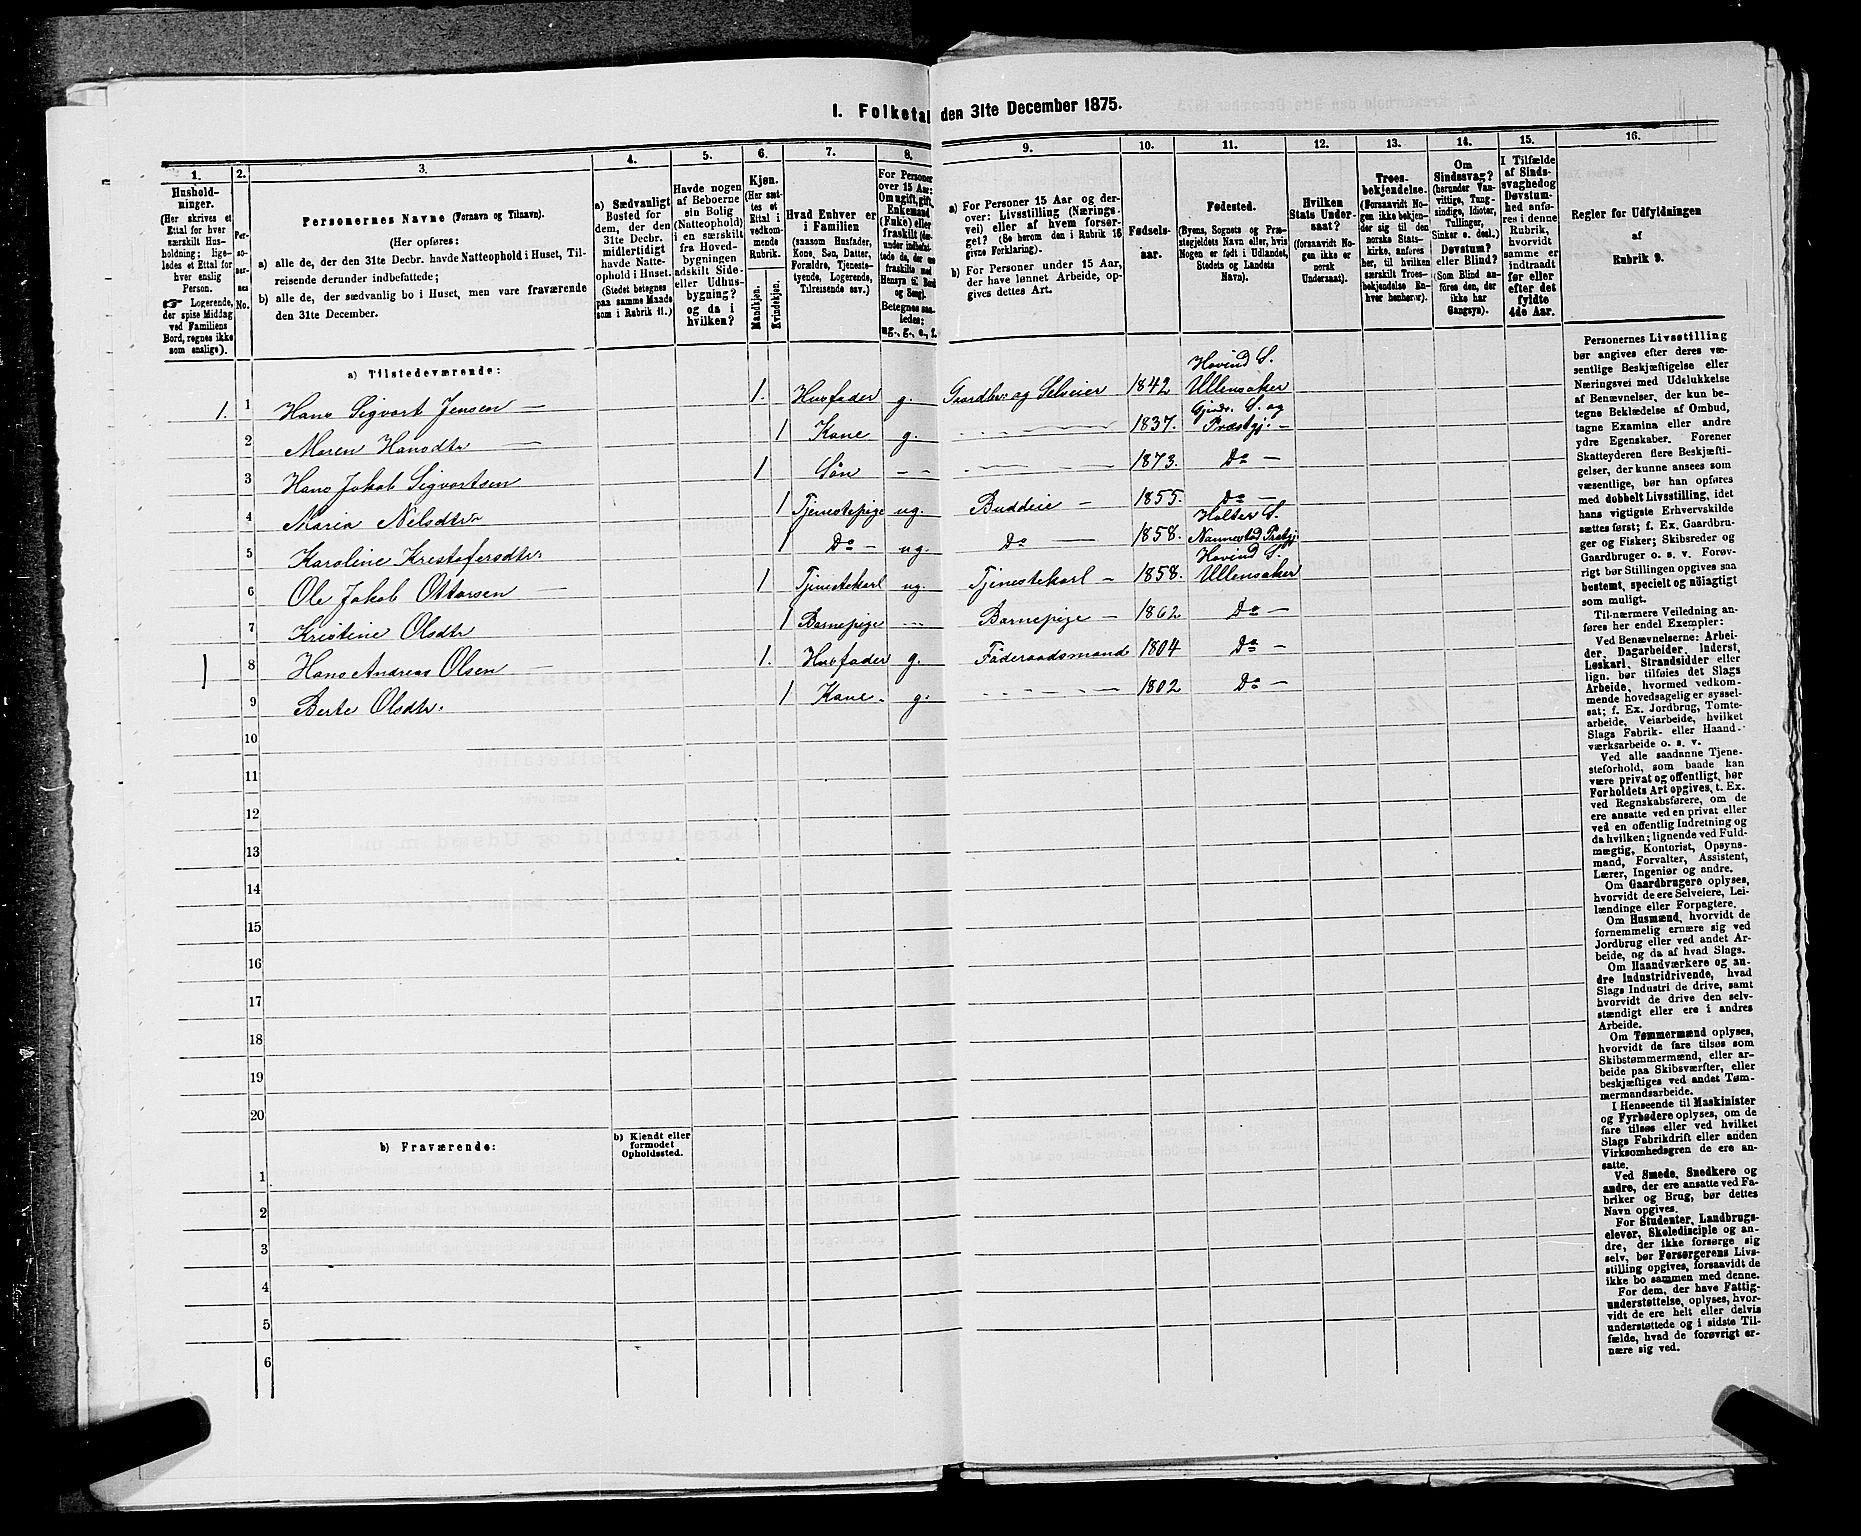 I. Folketal den 31te December 1875.
1. 2. 3. 4. 5. 6. 7. 8. 9. 10. 11. 12. 13. 14. 15. 16.
Hushold-
ninger.
(Her skrives et
Ettal for hver
særskilt Hus-
holdning; lige-
ledes et Ettal for
hver enslig
Person.
☞ Logerende,
der spise Middag
ved Familiens
Bord, regnes ikke
som enslige).
Per-
so-
ner-
nes
No.
Personernes Navne (Fornavn og Tilnavn).
(Her opføres:
a) alle de, der den 31te Decbr. havde Natteophold i Huset, Til-
reisende derunder indbefattede;
b) alle de, der sædvanlig bo i Huset, men vare fraværende
den 31te December.
a) Sædvanligt
Bosted for
dem, der den
31te Decbr.
midlertidigt
havde Natte-
ophold i Huset.
(Stedet betegnes
paa samme Maade
som i Rubrik 11.)
Havde nogen
af Beboerne
sin Bolig
(Natteophold)
i en særskilt
fra Hoved-
bygningen
adskilt Side-
eller Udhus-
bygning?
og da i
hvilken?
Kjøn.
(Her sæt-
tes et
Ettal i
vedkom-
mende
Rubrik.
Mandkjøn.
Kvindekjøn.
Hvad Enhver er
i Familien
(saasom Husfader,
Kone, Søn, Datter,
Forældre, Tjeneste-
tyende, Logerende,
Tilreisende osv.)
For Personer
over 15 Aar:
Om ugift, gift,
Enkemand
(Enke) eller
fraskilt (der-
under indbefat-
tede de, der ere
fraskilte med
Hensyn til Bord
og Seng).
Betegnes saa-
ledes:
ug., g., e., f.
a) For Personer 15 Aar og der-
over: Livsstilling (Nærings-
vei) eller af hvem forsør-
get? (Se herom den i Rubrik 16
givne Forklaring).
b) For Personer under 15 Aar,
der have lønnet Arbeide, op-
gives dettes Art.
Fødsels-
aar.
Fødested.
(Byens, Sognets og Præ-
stegjeldets Navn eller, hvis
Nogen er født i Udlandet,
Stedets og Landets
Navn).
Hvilken
Stats Under-
saat?
(forsaavidt No-
gen ikke er
norsk
Undersaat).
Troes-
bekjendelse.
(Forsaavidt No-
gen ikke bekjen-
der sig til den
norske Stats-
kirke, anføres
her, til hvilken
særskilt Troes-
bekjendelse En-
hver henhører).
Om
Sindssvag?
(herunder Van-
vittige, Tung-
sindige, Idioter,
Tullinger,
Sinker o. desl.)
Døvstum?
eller Blind?
(Som Blind an-
føres den, der
ikke har
Gangsyn).
I Tilfælde
af Sinds-
svaghed og
Døvstum-
hed anfø-
res i denne
Rubrik,
hvorvidt
samme er
indtraadt
før eller
efter det
fyldte
4de Aar.
Regler for Udfyldningen
af
Rubrik 9.
a) Tilstedeværende:
1. 1 Hans Sigvart Jensen — 1. Husfader g. Gaardbr. og Selveier 1842 Hovind S. Ullensaker
2 Maren Hansdtr — 1 Kone g. 1837. Gjerdr. S. og Præstgj. —
3 Hans Jakob Sigvartsen 1 Søn — — 1873. Do —
4 Maria Nelsdtr 1 Tjenestepige ug. Buddeie — 1855. Do —
5 Karoline Kristofersdtr. 1 Do — ug. Do — 1858. Holter S. Nannestad Prstgj.
6 Ole Jakob Ottarsen — 1 Tjenestekarl ug. Tjenestekarl — 1858. Hovind S. Ullensaker
7 Kristine Olsdtr 1 Barnepige --- Barnepige — 1862 Do —
1 8 Hans Andreas Olsen — 1. Husfader g. Föderaadsmand 1804 Do —
9 Berte Olsdtr. 1 Kone g. 1802 Do —
10
11
12
13
14
15
16
17
18
19
20
b) Fraværende:
b) Kjendt eller
formodet
Opholdssted.
1
2
3
4
5
6
Personernes Livsstilling
bør angives efter deres væ-
sentlige Beskjæftigelse eller
Næringsvei med Udelukkelse
af Benævnelser, der kun be-
tegne Beklædelse af Ombud,
tagne Examina eller andre
ydre Egenskaber. Forener
Skatteyderen flere Beskjæfti-
gelser, der kunne ansees som
væsentlige, bør han opføres
med dobbelt Livsstilling, idet
hans vigtigste Erhvervskilde
sættes først; f. Ex. Gaardbru-
ger og Fisker; Skibsreder og
Gaardbruger o. s. v. Forøv-
rigt bør Stillingen opgives saa
bestemt, specielt og nöiagtigt
som muligt.
Til nærmere Veiledning an-
føres her endel Exempler:
Ved Benævnelserne: Arbei-
der, Dagarbeider, Inderst,
Løskarl, Strandsidder eller
lign. bør tilføies det Slags
Arbeide, hvormed vedkom-
mende hovedsagelig er syssel-
sat; f. Ex. Jordbrug, Tomte-
arbeide, Veiarbeide, hvilket
Slags Fabrik- eller Haand-
værksarbeide o. s. v.
Ved alle saadanne Tjene-
steforhold, som baade kan
være privat og offentligt, bør
Forholdets Art opgives, t. Ex.
ved Regnskabsførere, om de
ere ansatte ved en privat eller
ved en offentlig Indretning og
da hvilken; lignende ved Fuld-
mægtig, Kontorist, Opsyns-
mand, Forvalter, Assistent,
Lærer, Ingeniør og andre.
Om Gaardbrugere oplyses,
hvorvidt de ere Selveiere, Lei-
lændinge eller Forpagtere.
Om Husmænd, hvorvidt de
fornemmelig ernære sig ved
Jordbrug eller ved andet Ar-
beide, og da af hvad Slags.
Om Haandværkere og an-
dre Industridrivende, hvad
Slags Industri de drive, samt
hvorvidt de drive den selv-
stændigt eller ere i andres
Arbeide.
Om Tømmermænd oplyses,
hvorvidt de fare tilsøs som
Skibstømmermænd, eller ar-
beide paa Skibsværfter, eller
beskjæftiges ved andet Tøm-
mermandsarbeide.
I Henseende til Maskinister
og Fyrbødere oplyses, om de
fare tilsøs eller ved hvilket
Slags Fabrikdrift eller anden
Virksomhedsgren de ere an-
satte.
Ved Smede, Snedkere og
andre, der ere ansatte ved Fa-
briker og Brug, bør dettes
Navn opgives.
For Studenter, Landbrugs-
elever, Skoledisciple og an-
dre, der ikke forsørge sig
selv, bør Forsørgerens Livs-
stilling opgives, forsaavidt de
ikke bo sammen med denne.
For dem, der have Fattig-
understøttelse, oplyses, hvor-
vidt de ere helt eller delvis
understøttede og i sidste Til-
fælde, hvad de forøvrigt er-
nære sig ved.